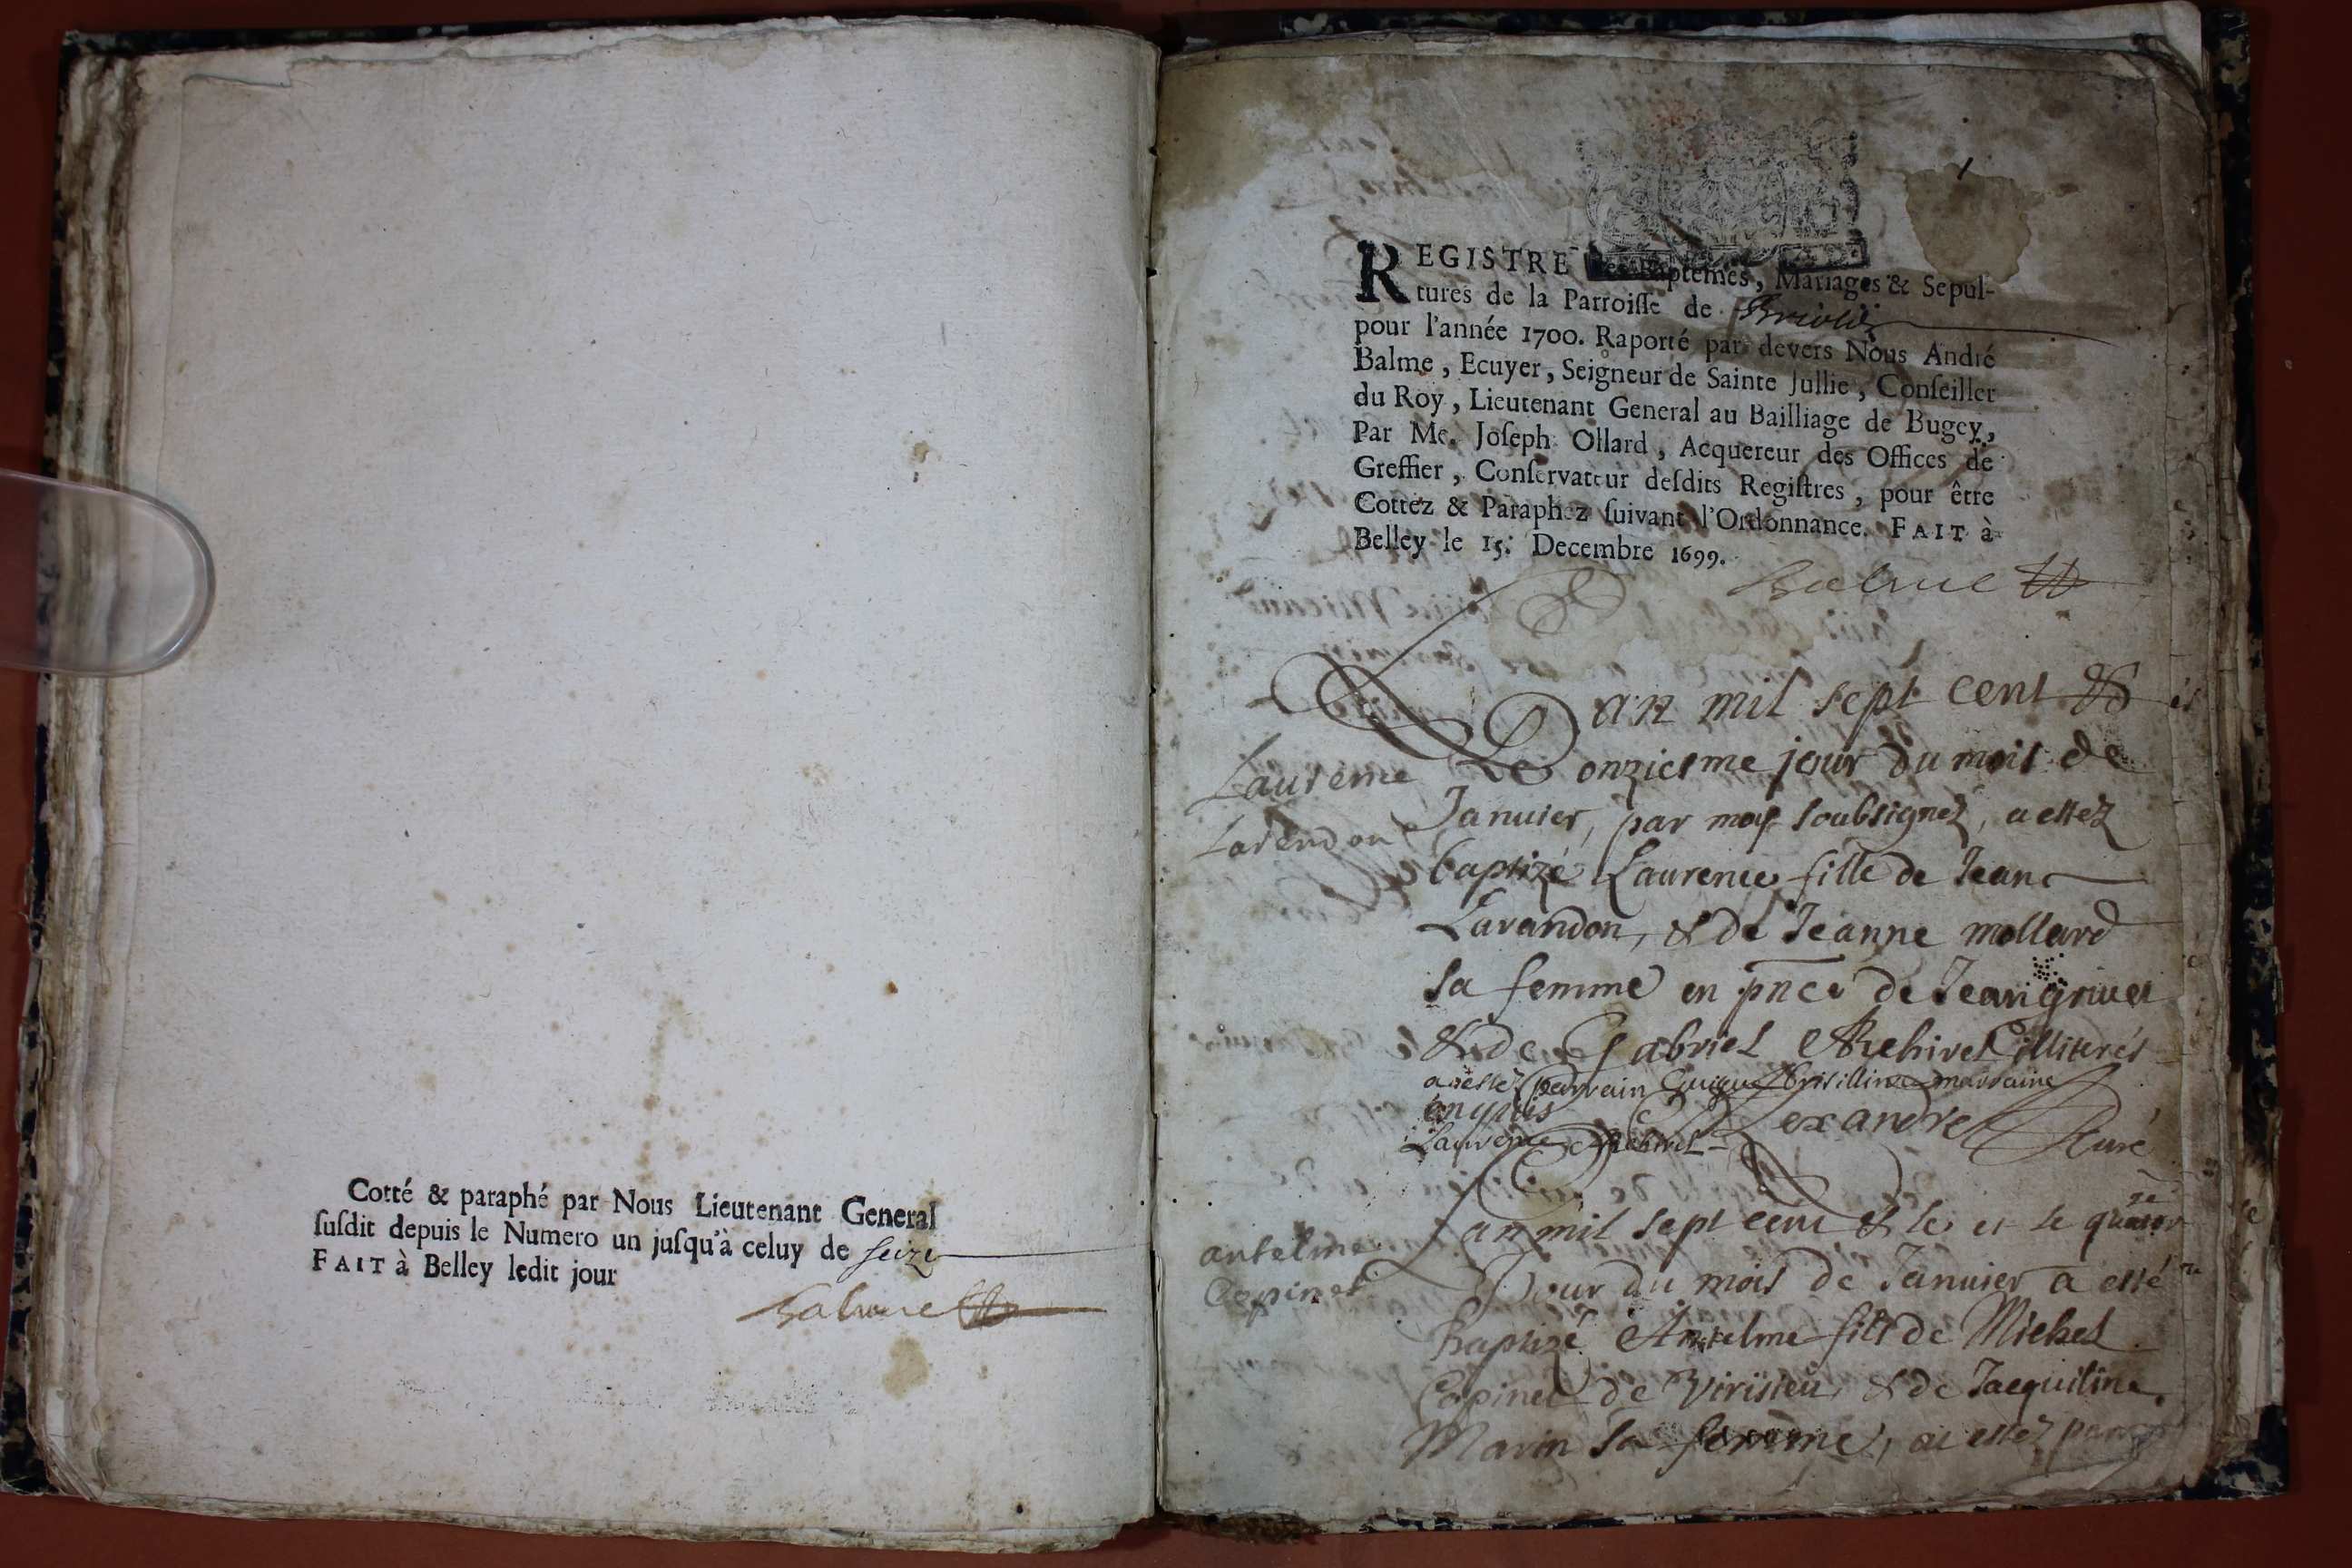 Cotté & paraphé par Nous Lieutenant General
ſuſdit depuis le Numero un juſqu'à celuy de seize
FAIT à Belley ledit jour
Balme
1
REGISTRE des Baptemes, Mariages & Sepul-
tures de la Parroiſſe de
pour l'année 1700. Raporté par devers Nous André
Balme, Ecuyer, Seigneur de Sainte Jullie, Conſeiller
du Roy, Lieutenant General au Bailliage de Bugey,
Par Me. Joſeph Ollard, Acquereur des Offices de
Greffier, Conſervateur deſdits Regiſtres, pour être
Cottez & Paraphez ſuivant l'Ordonnance. FAIT à
Belley le 15. Decembre 1699.
Balme
Lan mil sept cent &
Le onziesme jour du mois de
Janvier, par moy soubsignez, a estez
baptizé Laurence fille de Jean
Lavandon, & de Jeanne mollard
sa femme en pnce de Jean grivet
& de Gabriel Rehivel illiterés
a estez parrain marraine
enquis
Laurence Rehivel
Alexandre Curé
Laurence
Lavendon
Lan mil sept cent & le et le quator
ze
jour du mois de Janvier a esté
baptizé Antelme fils de Michel
Copinet de Virisieu, & de Jacquiline
Marin sa femme, a estez parra
antelme
Copinet